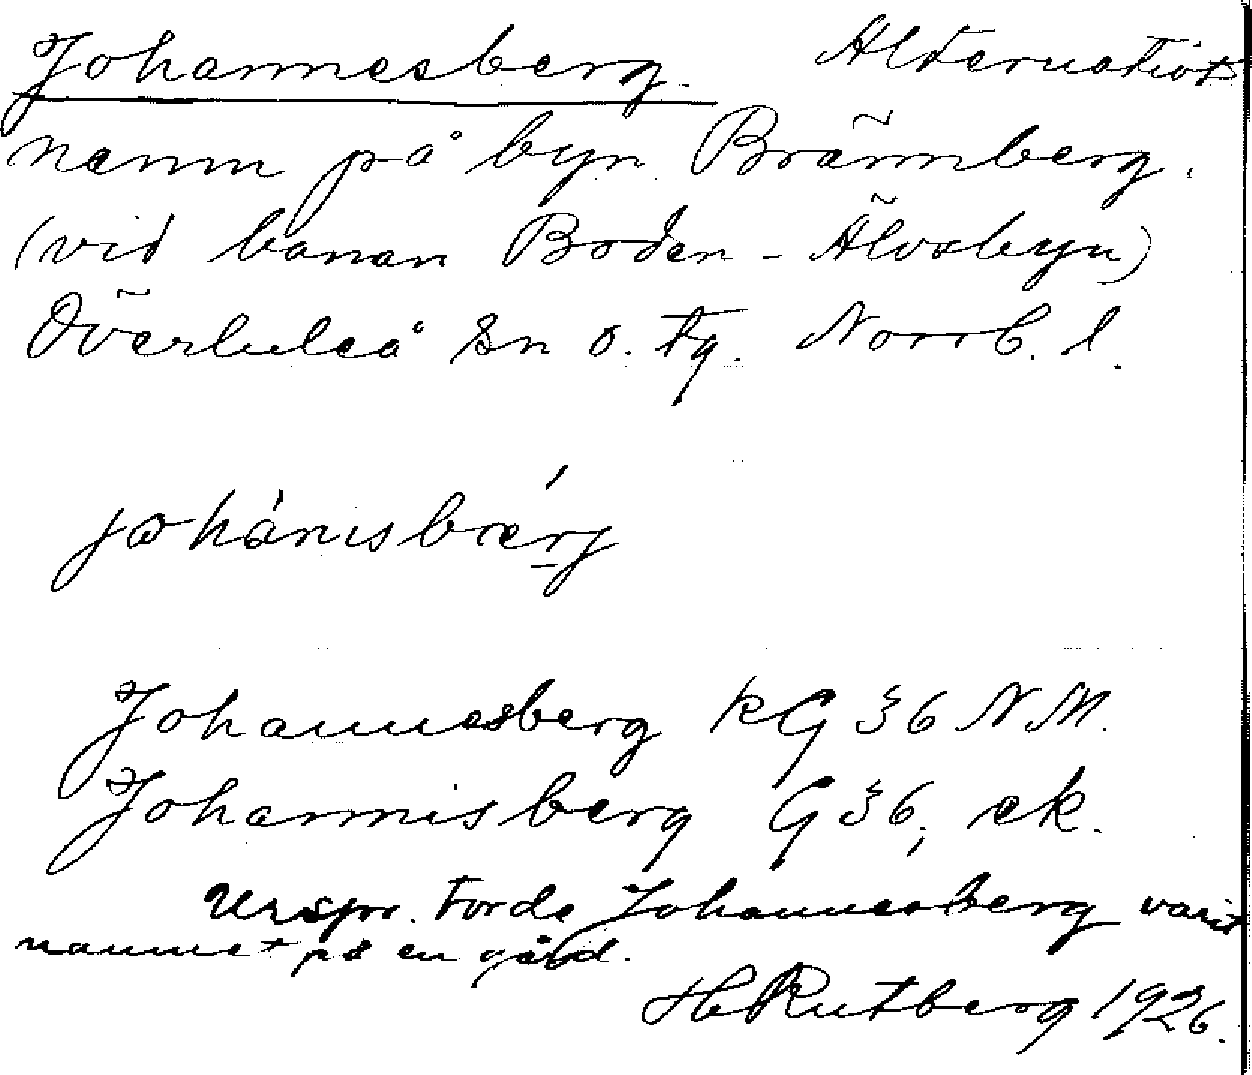 Johannesberg. Alternativt
namn på byn Brännberg.
(vid banan Boden - Älvsbyn)
Överluleå sn o. tg. Norrb. l.
johánisbærj
Johannesberg kG 36 NM.
Johannisberg G 36, ek.
Urspr. torde Johannesberg varit
namnet på en gård.
H Rutberg 1926.